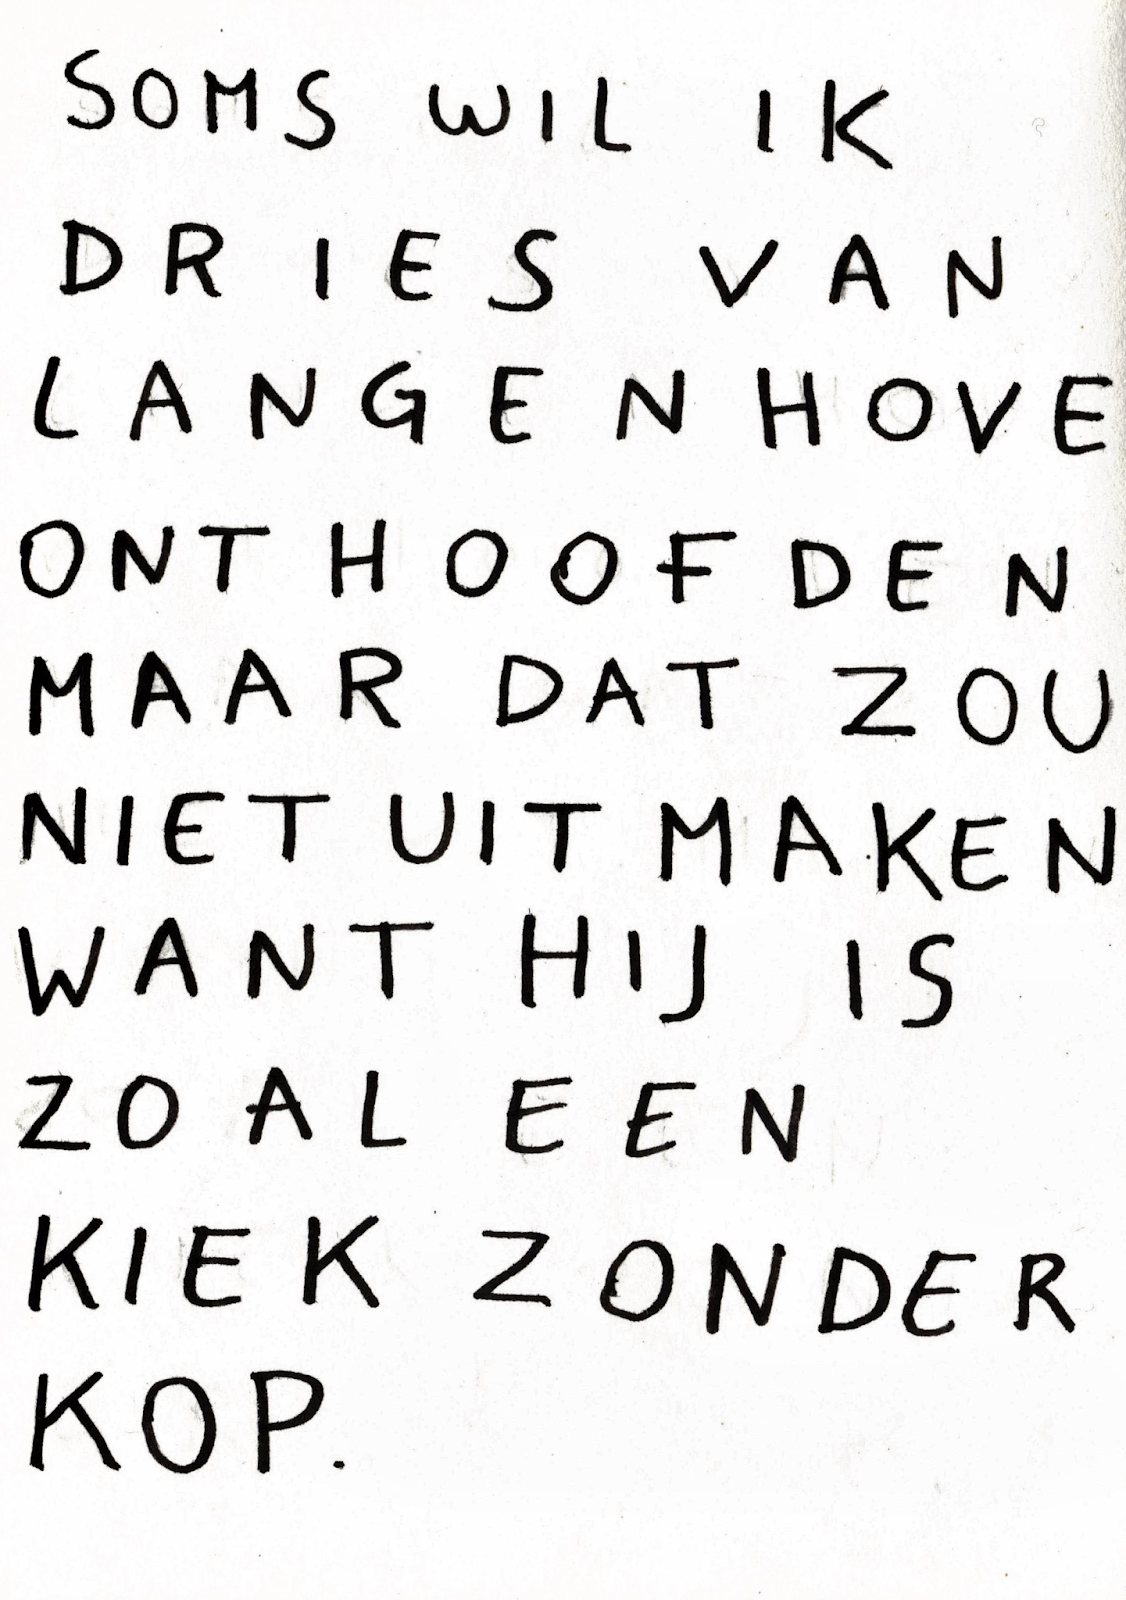 SOMS WIL IK
DRIES VAN
LANGENHOVE
ONTHOOFDEN
MAAR DAT ZOU
NIET UITMAKEN
WANT HIJ IS
ZOAL EEN
KIEK ZONDER
KOP.